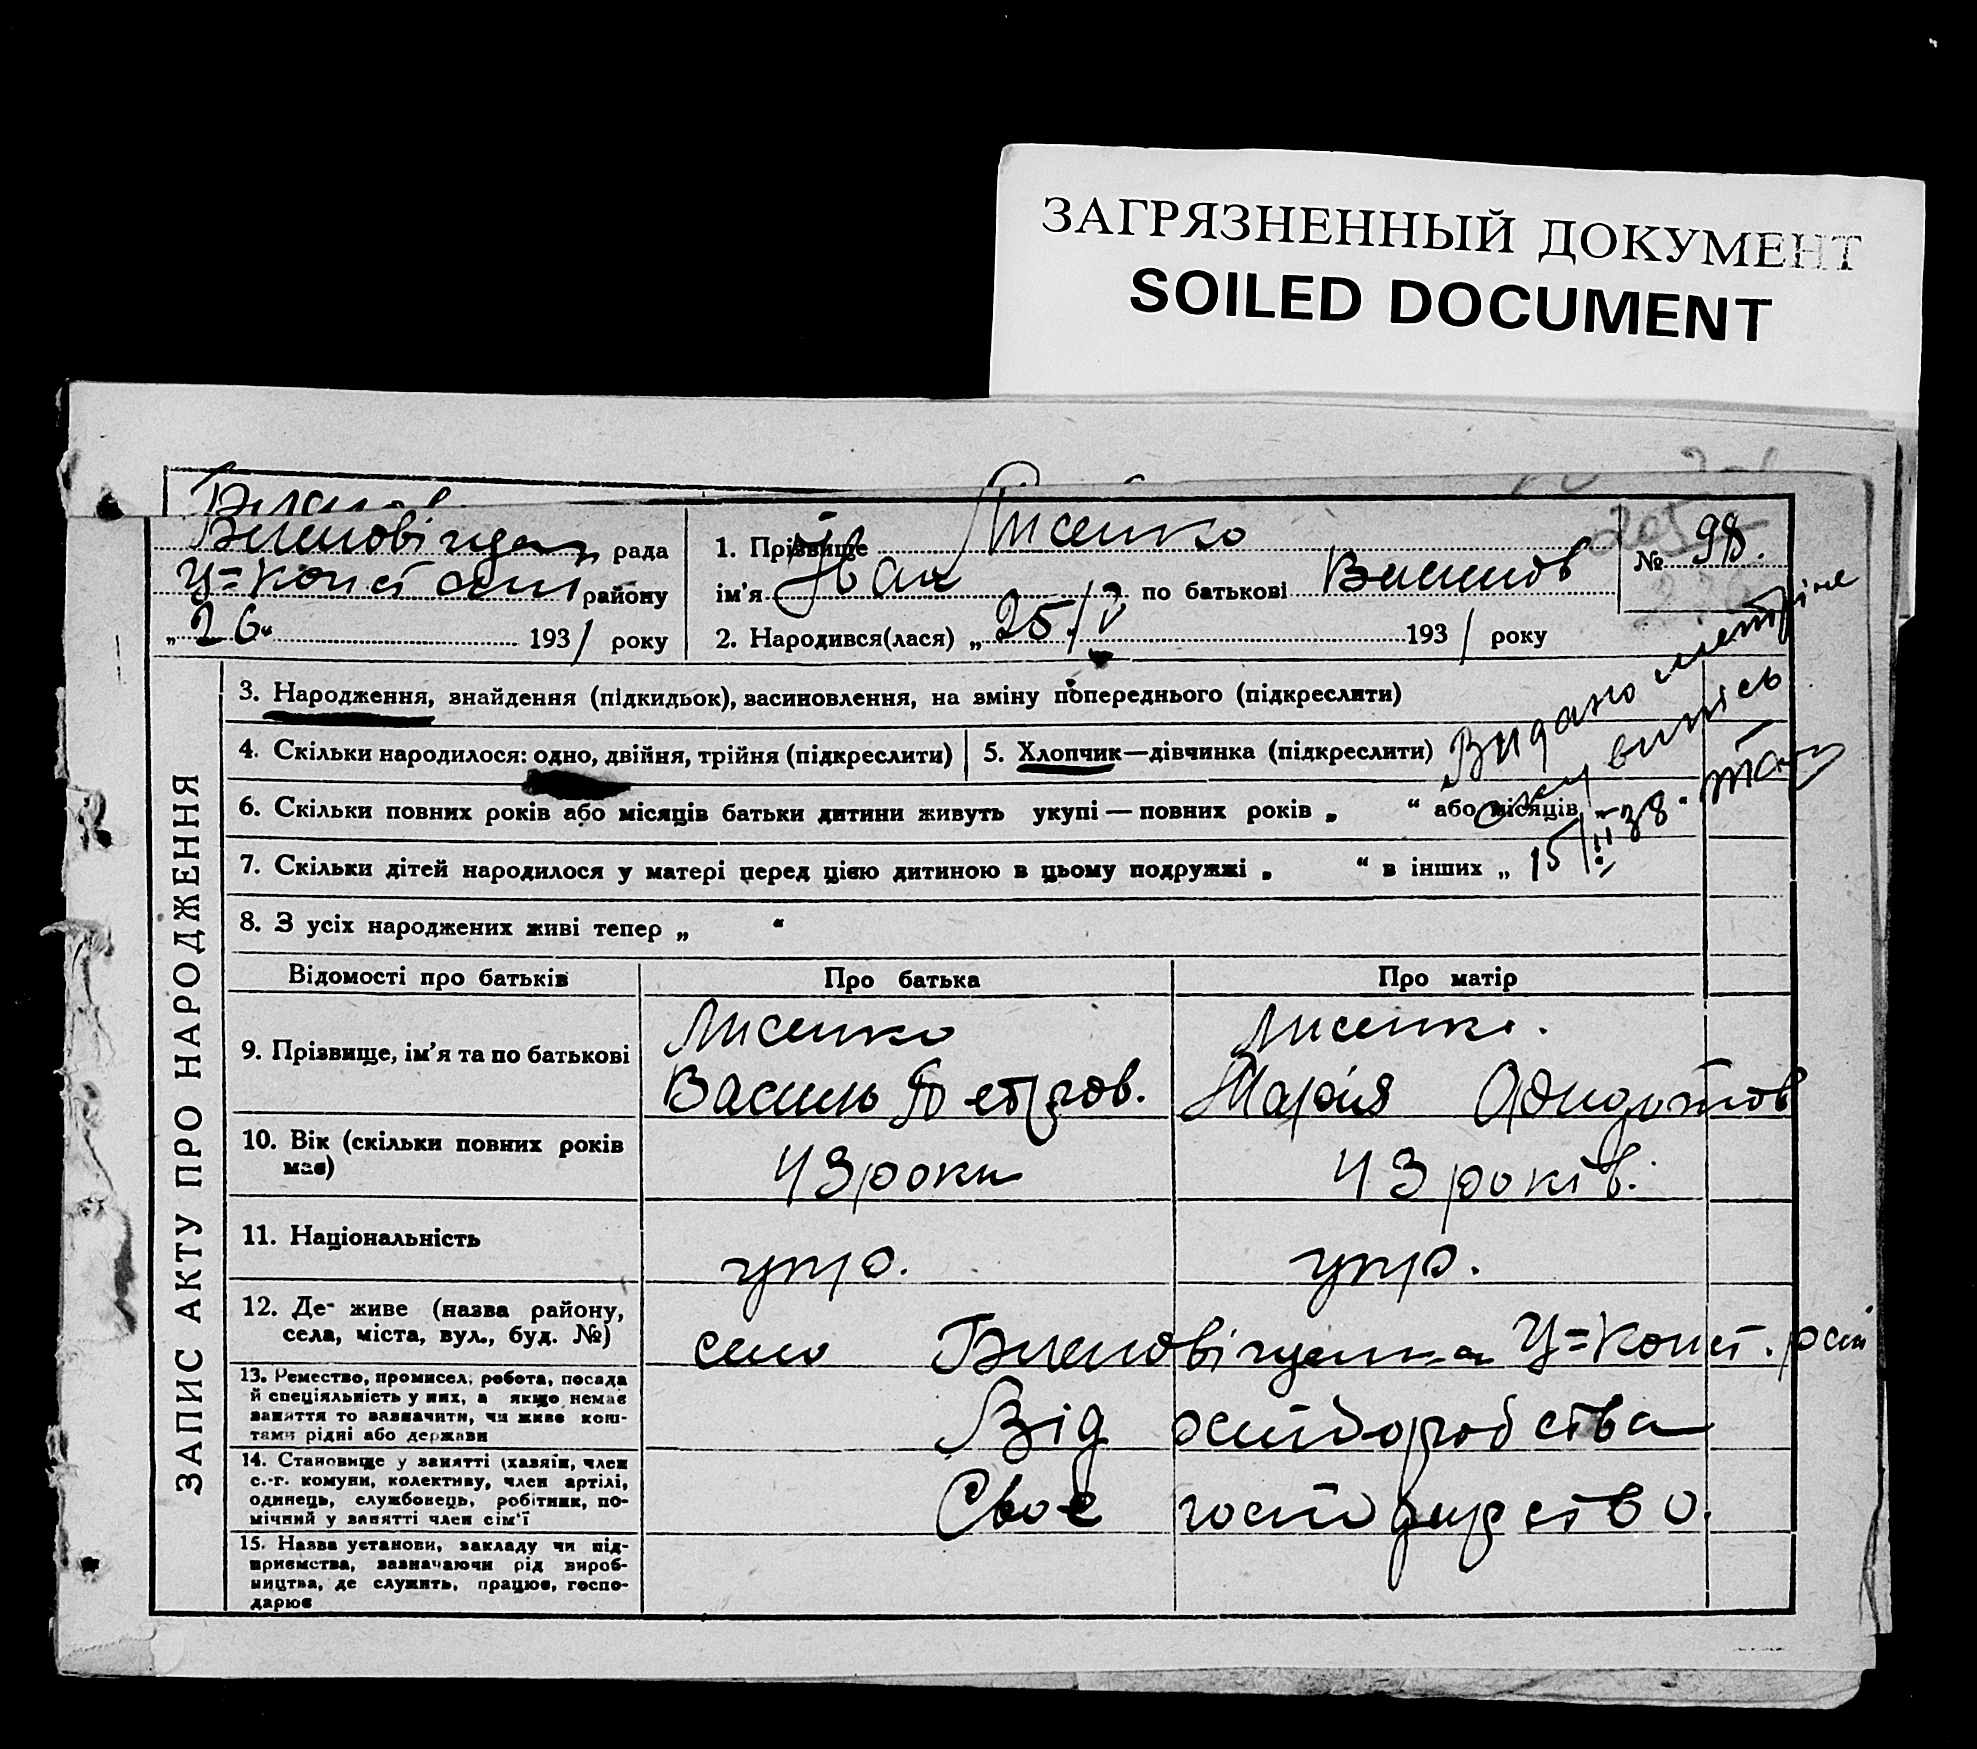 ЗАГРЯЗНЕННЫЙ ДОКУМЕНТ
SOILED DOCUMENT
рада
У=Конст району
„ 26. 1931 року
1. Прізвище Лисенко
ім'я Іван по батькові Васильов
2. Народився(лася) „ 25/V 1931 року
№ 98.
205
ЗАПИС АКТУ ПРО НАРОДЖЕННЯ
3. Народження, знайдення (підкидьок), засиновлення, на зміну попереднього (підкреслити)
4. Скільки народилося: одно, двійня, трійня (підкреслити)
5. Хлопчик—дівчинка (підкреслити)
Видано метричне
виписъ
15/III 38.
6. Скільки повних років або місяців батьки дитини живуть укупі — повних років „ “ або місяців „
7. Скільки дітей народилося у матері перед цією дитиною в цьому подружжі „ “ в інших „
8. З усіх народжених живі тепер „ “
Відомості про батьків
Про батька
Про матір
9. Прізвище, ім'я та по батькові
Лисенко
Василь Петров.
Лисенко.
Марія
10. Вік (скільки повних років
має)
43 роки
43 років.
11. Національність
укр.
укр.
12. Де живе (назва району,
села, міста, вул., буд. №)
село У=Конст.
13. Ремество, промисел, робота, посада
й спеціяльність у них, а якщо немає
заняття то зазначити, чи живе кош-
тами рідні або держави
Від
14. Становище у занятті (хазяїн, член
с.-г. комуни, колективу, член артілі,
одинець, службовець, робітник, по-
мічний у занятті член сім'ї
Своє господарство.
15. Назва установи, закладу чи під-
приємства, зазначаючи рід вироб-
ництва, де служить, працює, госпо-
дарює